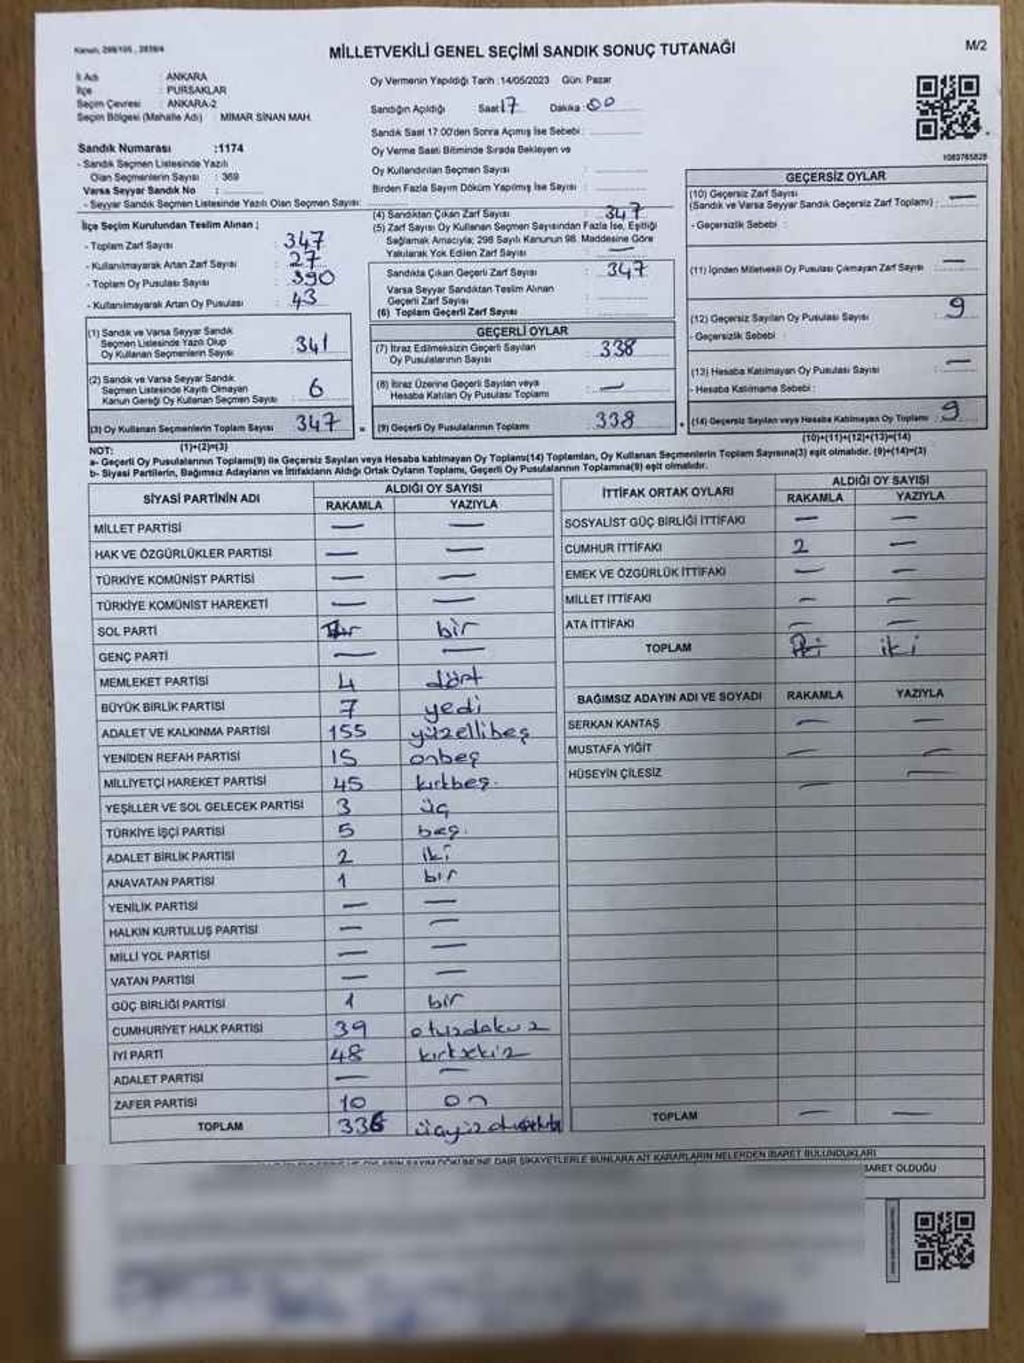 Kanun, 298/105 , 2839/4
MİLLETVEKİLİ GENEL SEÇİMİ SANDIK SONUÇ TUTANAĞI
M/2
İl Adı : ANKARA
İlçe : PURSAKLAR
Seçim Çevresi : ANKARA-2
Seçim Bölgesi (Mahalle Adı) : MIMAR SİNAN MAH.
Oy Vermenin Yapıldığı Tarih :14/05/2023 Gün: Pazar
Sandığın Açıldığı Saat 17 Dakika : 00
Sandık Saat 17:00'den Sonra Açılmış İse Sebebi :
Oy Verme Saati Bitiminde Sırada Bekleyen ve
Oy Kullandırılan Seçmen Sayısı :
Birden Fazla Sayım Döküm Yapılmış İse Sayısı :
Sandık Numarası :1174
- Sandık Seçmen Listesinde Yazılı
Olan Seçmenlerin Sayısı : 369
Varsa Seyyar Sandık No :
- Seyyar Sandık Seçmen Listesinde Yazılı Olan Seçmen Sayısı:
1080765828
İlçe Seçim Kurulundan Teslim Alınan ;
- Toplam Zarf Sayısı : 347
- Kullanılmayarak Artan Zarf Sayısı : 27
- Toplam Oy Pusulası Sayısı : 390
- Kullanılmayarak Artan Oy Pusulası : 43
(1) Sandık ve Varsa Seyyar Sandık
Seçmen Listesinde Yazılı Olup
Oy Kullanan Seçmenlerin Sayısı : 341
(2) Sandık ve Varsa Seyyar Sandık
Seçmen Listesinde Kayıtlı Olmayan
Kanun Gereği Oy Kullanan Seçmen Sayısı : 6
(3) Oy Kullanan Seçmenlerin Toplam Sayısı : 347
(1)+(2)=(3)
(4) Sandıktan Çıkan Zarf Sayısı : 347
(5) Zarf Sayısı Oy Kullanan Seçmen Sayısından Fazla İse, Eşitliği
Sağlamak Amacıyla; 298 Sayılı Kanunun 98. Maddesine Göre
Yakılarak Yok Edilen Zarf Sayısı : —
Sandıkta Çıkan Geçerli Zarf Sayısı : 347
Varsa Seyyar Sandıktan Teslim Alınan
Geçerli Zarf Sayısı :
(6) Toplam Geçerli Zarf Sayısı :
GEÇERLİ OYLAR
(7) İtiraz Edilmeksizin Geçerli Sayılan
Oy Pusulalarının Sayısı : 338
(8) İtiraz Üzerine Geçerli Sayılan veya
Hesaba Katılan Oy Pusulası Toplamı : —
= (9) Geçerli Oy Pusulalarının Toplamı : 338
GEÇERSİZ OYLAR
(10) Geçersiz Zarf Sayısı
(Sandık ve Varsa Seyyar Sandık Geçersiz Zarf Toplamı) : —
- Geçersizlik Sebebi :
(11) İçinden Milletvekili Oy Pusulası Çıkmayan Zarf Sayısı : —
(12) Geçersiz Sayılan Oy Pusulası Sayısı : 9
- Geçersizlik Sebebi :
(13) Hesaba Katılmayan Oy Pusulası Sayısı : —
- Hesaba Katılmama Sebebi :
+ (14) Geçersiz Sayılan veya Hesaba Katılmayan Oy Toplamı : 9
(10)+(11)+(12)+(13)=(14)
NOT:
a- Geçerli Oy Pusulalarının Toplamı(9) ile Geçersiz Sayılan veya Hesaba katılmayan Oy Toplamı(14) Toplamları, Oy Kullanan Seçmenlerin Toplam Sayısına(3) eşit olmalıdır. (9)+(14)=(3)
b- Siyasi Partilerin, Bağımsız Adayların ve İttifakların Aldığı Ortak Oyların Toplamı, Geçerli Oy Pusulalarının Toplamına(9) eşit olmalıdır.
SİYASİ PARTİNİN ADI ALDIĞI OY SAYISI
RAKAMLA YAZIYLA
MİLLET PARTİSİ — —
HAK VE ÖZGÜRLÜKLER PARTİSİ — —
TÜRKİYE KOMÜNİST PARTİSİ — —
TÜRKİYE KOMÜNİST HAREKETİ — —
SOL PARTİ bir
GENÇ PARTİ — —
MEMLEKET PARTİSİ 4 dört
BÜYÜK BİRLİK PARTİSİ 7 yedi
ADALET VE KALKINMA PARTİSİ 155 yüzellibeş
YENİDEN REFAH PARTİSİ 15 onbeş
MİLLİYETÇİ HAREKET PARTİSİ 45 kırkbeş.
YEŞİLLER VE SOL GELECEK PARTİSİ 3 üç
TÜRKİYE İŞÇİ PARTİSİ 5 beş.
ADALET BİRLİK PARTİSİ 2 iki
ANAVATAN PARTİSİ 1 bir
YENİLİK PARTİSİ — —
HALKIN KURTULUŞ PARTİSİ — —
MİLLİ YOL PARTİSİ — —
VATAN PARTİSİ — —
GÜÇ BİRLİĞİ PARTİSİ 1 bir
CUMHURİYET HALK PARTİSİ 39 otuzdokuz
İYİ PARTİ 48 kırksekiz
ADALET PARTİSİ — —
ZAFER PARTİSİ 10 on
TOPLAM 336
İTTİFAK ORTAK OYLARI ALDIĞI OY SAYISI
RAKAMLA YAZIYLA
SOSYALİST GÜÇ BİRLİĞİ İTTİFAKI — —
CUMHUR İTTİFAKI 2 —
EMEK VE ÖZGÜRLÜK İTTİFAKI — —
MİLLET İTTİFAKI — —
ATA İTTİFAKI — —
TOPLAM iki
BAĞIMSIZ ADAYIN ADI VE SOYADI RAKAMLA YAZIYLA
SERKAN KANTAŞ — —
MUSTAFA YİĞİT — —
HÜSEYİN ÇİLESİZ — —
TOPLAM — —
DÖKÜMÜNE DAİR ŞİKAYETLERLE BUNLARA AİT KARARLARIN NELERDEN İBARET BULUNDUKLARI
İBARET OLDUĞU